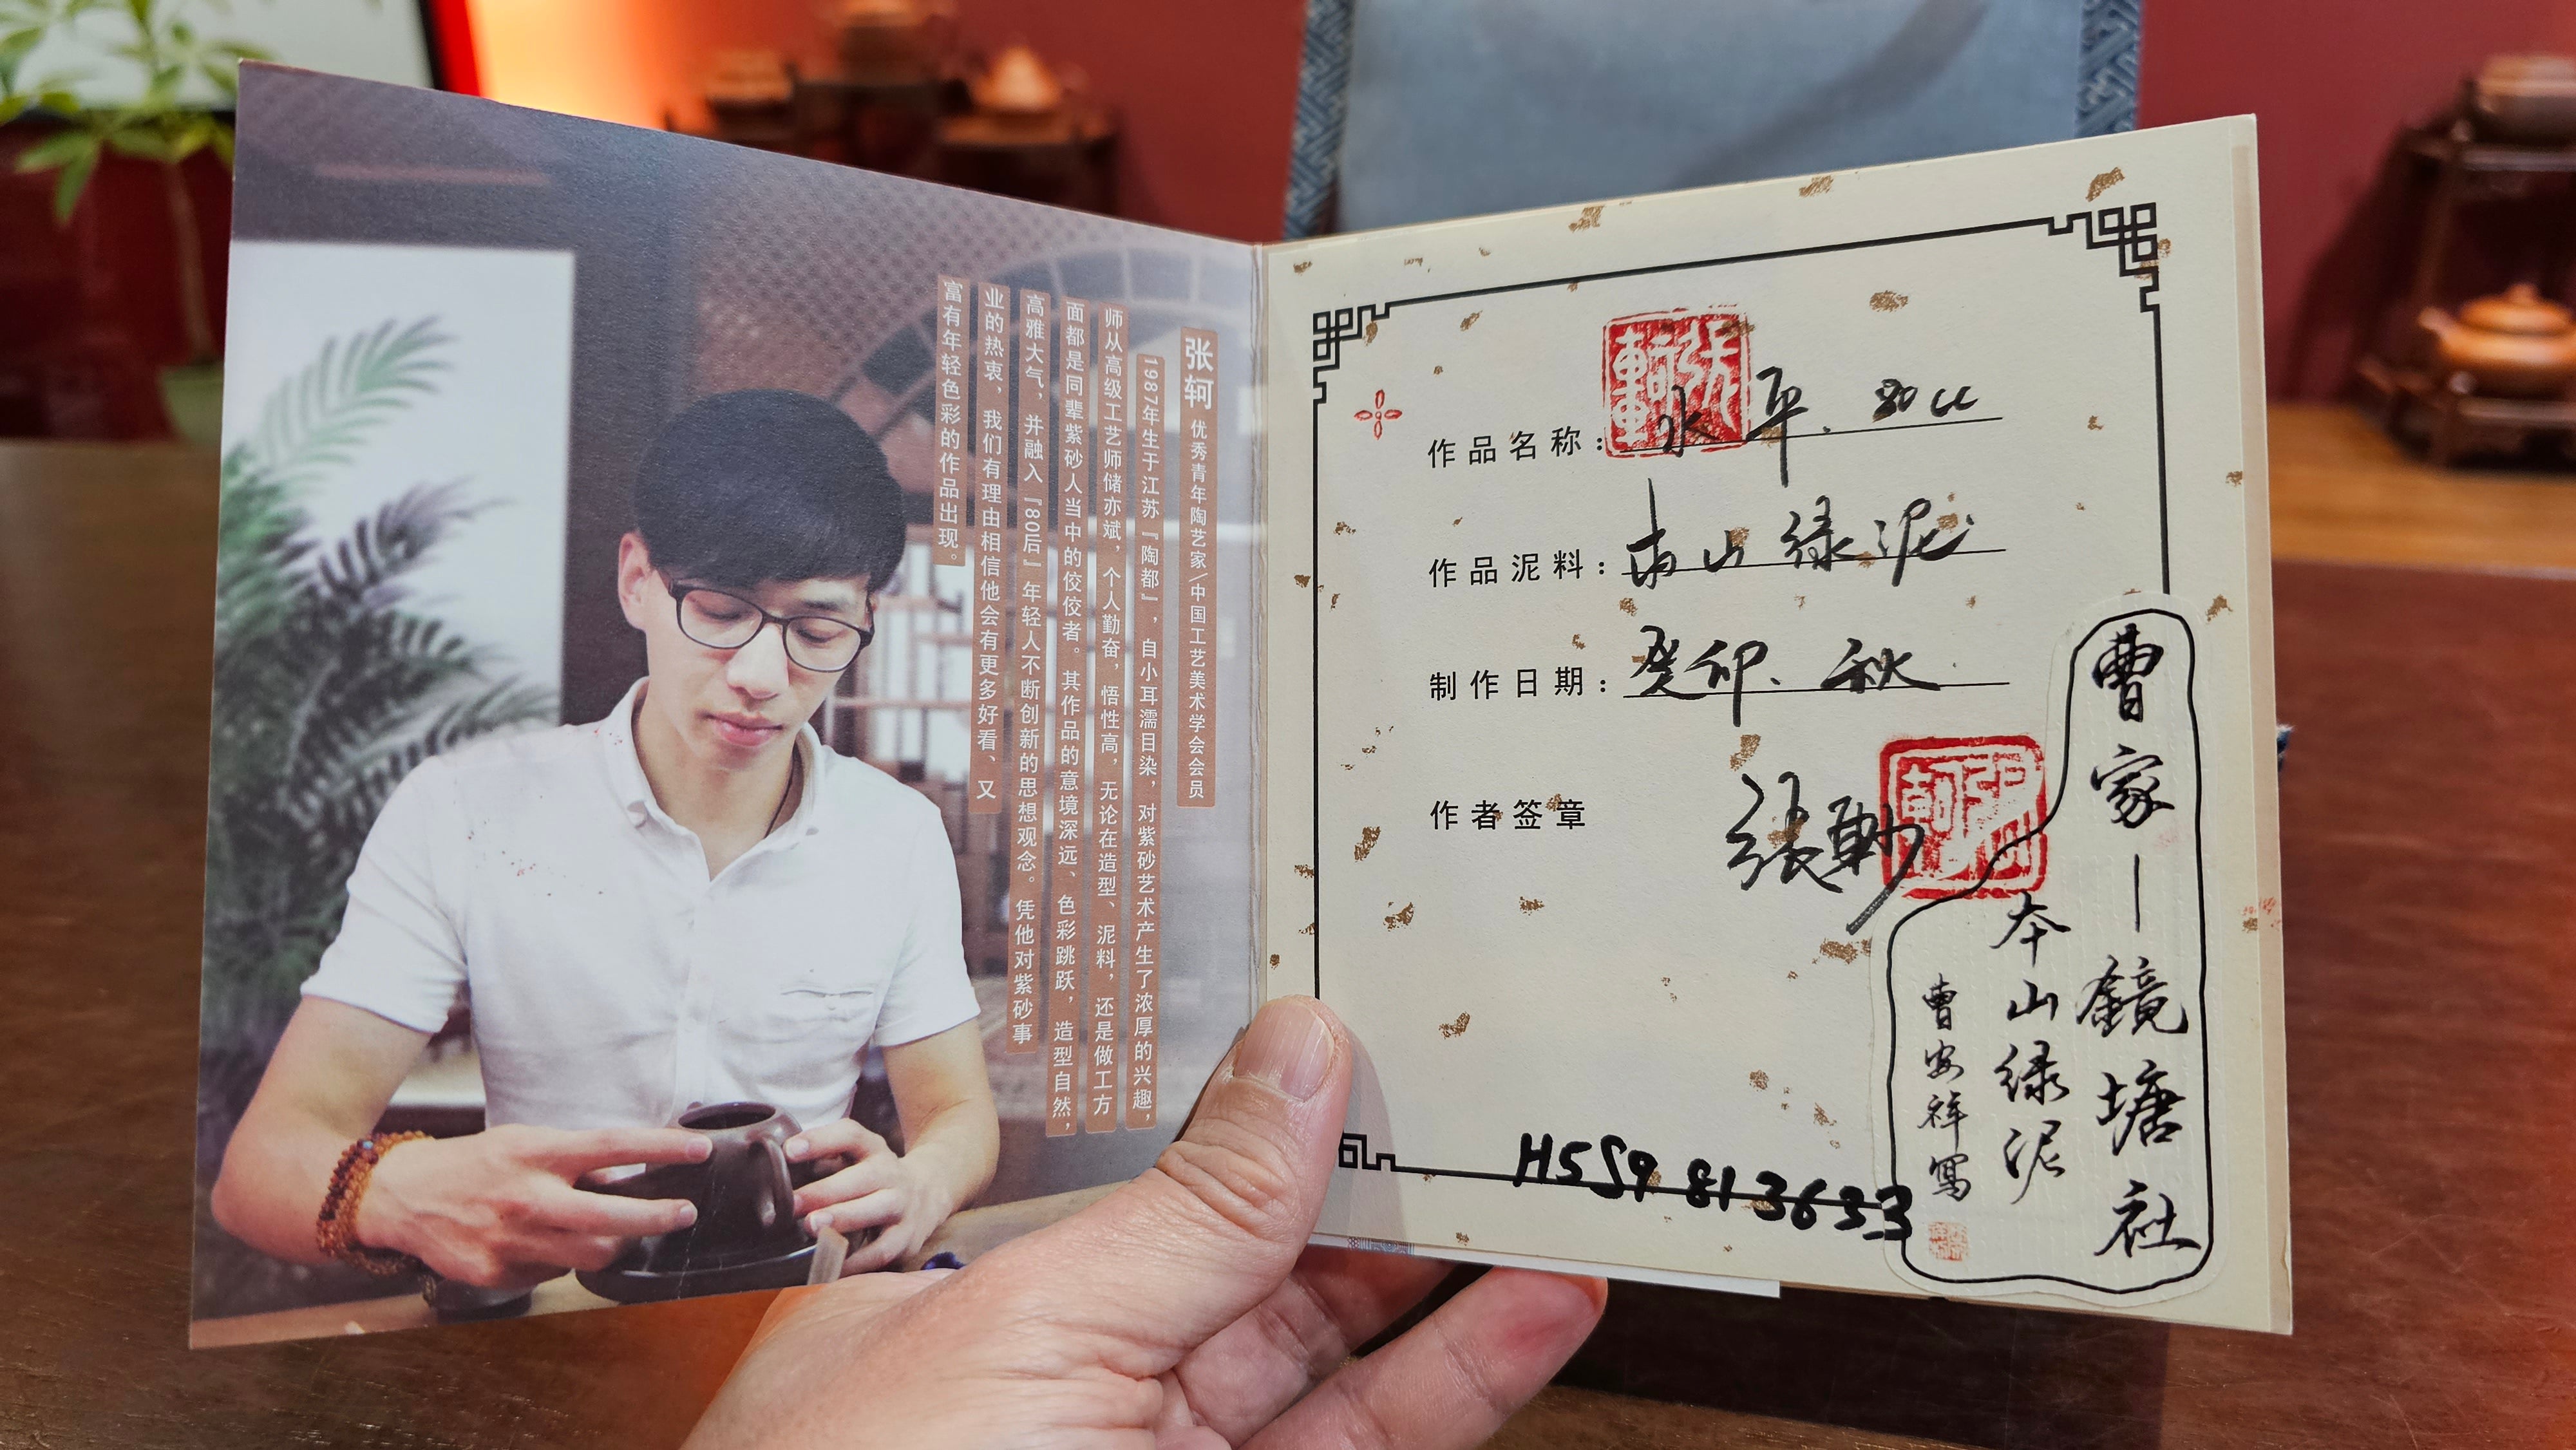 张轲 优秀青年陶艺家/中国工艺美术学会会员
1987年生于江苏『陶都』，自小耳濡目染，对紫砂艺术产生了浓厚的兴趣，
师从高级工艺师储亦斌，个人勤奋，悟性高，无论在造型、泥料，还是做工方
面都是同辈紫砂人当中的佼佼者。其作品的意境深远、色彩跳跃，造型自然，
高雅大气，并融入『80后』年轻人不断创新的思想观念。凭他对紫砂事
业的热衷，我们有理由相信他会有更多好看、又
富有年轻色彩的作品出现。
作品名称：水平. 80cc
作品泥料：本山绿泥
制作日期：癸卯. 秋
作者签章 张軻
曹家—鏡塘社
本山绿泥
曹安祥寫
H559813633